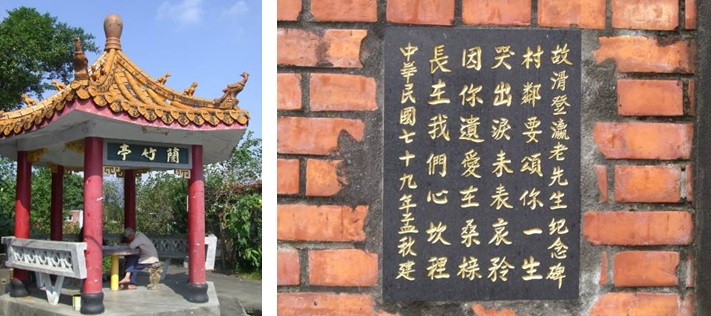 蘭竹亭
故滑登瀛老先生紀念碑
村鄰要頌你一生
哭出淚来表哀矜
因你遺愛在桑榟
長在我們心坎裡
中華民國七十九年孟秋建